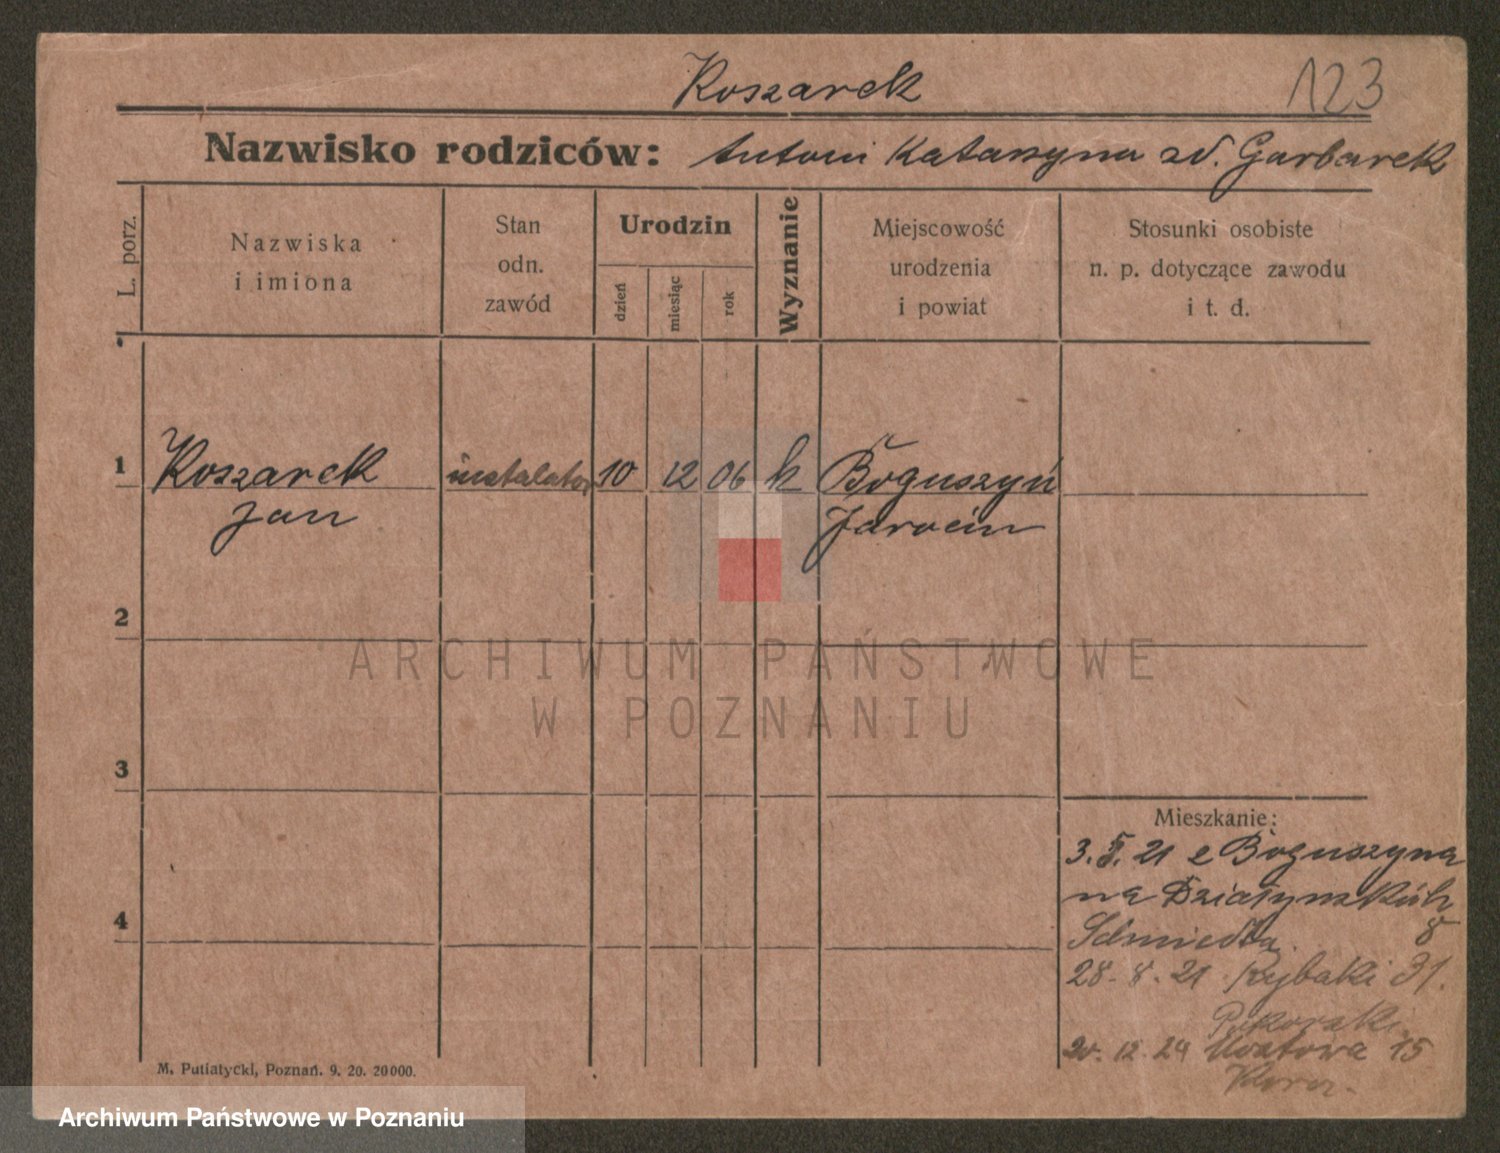 Koszarek
123
Nazwisko rodziców: Antoni Katarzyna zd. Garbarek
L. porz.
Nazwiska
i imiona
Stan
odn.
zawód
Urodzin
dzień
miesiąc
rok
Wyznanie
Miejscowość
urodzenia
i powiat
Stosunki osobiste
n. p. dotyczące zawodu
i t. d.
1
Koszarek
Jan
instalator
10
12
06
k
Boguszyń
Jarocin
2
3
4
Mieszkanie:
3. 5. 21 z Boguszyna
na Działyńskich
8
28. 8. 21 Rybaki 31.
Pikorski
20. 12. 24 15
M. Putiatycki, Poznań. 9. 20. 20000.
ARCHIWUM PAŃSTWOWE
W POZNANIU
Archiwum Państwowe w Poznaniu